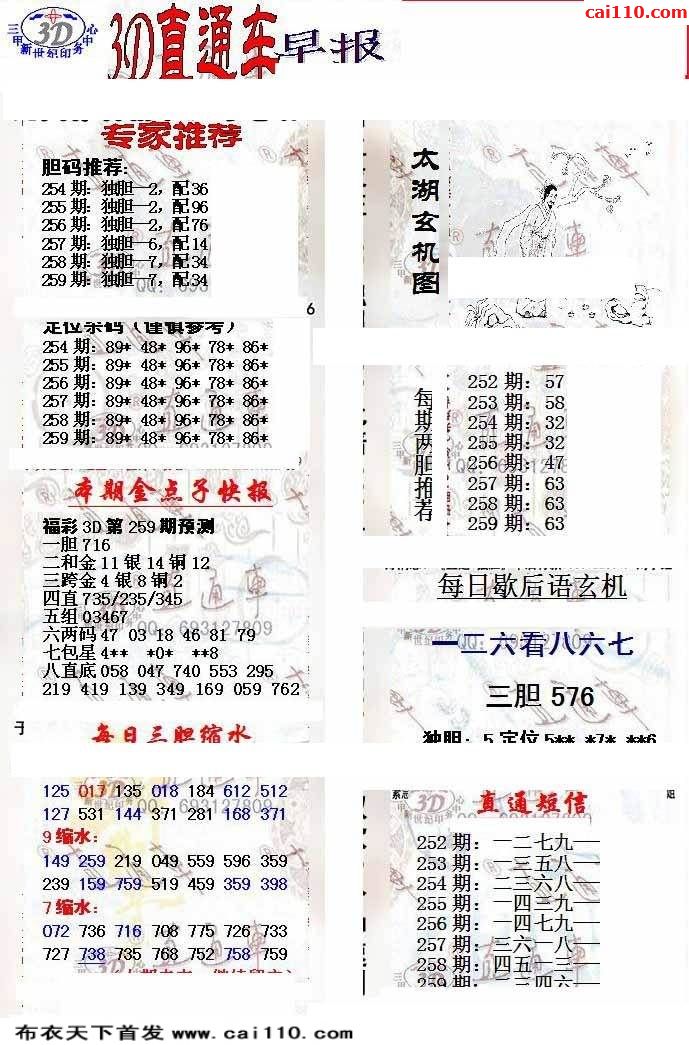 cai110.com
三甲 3D 中心
新世纪印务
3D直通车早报
专家推荐
胆码推荐:
254 期: 独胆—2, 配36
255 期: 独胆—2, 配96
256 期: 独胆—2, 配76
257 期: 独胆—6, 配14
258 期: 独胆—7, 配34
259 期: 独胆—7, 配34
6
定位杀码 (谨慎参考)
254 期: 89* 48* 96* 78* 86*
255 期: 89* 48* 96* 78* 86*
256 期: 89* 48* 96* 78* 86*
257 期: 89* 48* 96* 78* 86*
258 期: 89* 48* 96* 78* 86*
259 期: 89* 48* 96* 78* 86*
本期金点子快报
福彩 3D 第 259 期预测
一胆 716
二和金 11 银 14 铜 12
三跨金 4 银 8 铜 2
四直 735/235/345
五组 03467
六两码 47 03 18 46 81 79
七包星 4** *0* **8
八直底 058 047 740 553 295
219 419 139 349 169 059 762
QQ: 693127809
每日三胆缩水
125 017 135 018 184 612 512
127 531 144 371 281 168 371
9 缩水:
149 259 219 049 559 596 359
239 159 759 519 459 359 398
7 缩水:
072 736 716 708 775 726 733
727 738 735 768 752 758 759
太湖玄机图
每期两胆推荐
252 期: 57
253 期: 58
254 期: 32
255 期: 32
256 期: 47
257 期: 63
258 期: 63
259 期: 63
每日歇后语玄机
一二六看八六七
三胆 576
独胆: 5 定位 5** *7* **6
直通短信
252 期: 一二七九一
253 期: 一三五八一
254 期: 二三六八一
255 期: 一四三九一
256 期: 一四七九一
257 期: 三六一八一
258 期: 四五一三一
259 期: 一三四六一
布衣天下首发 www.cai110.com